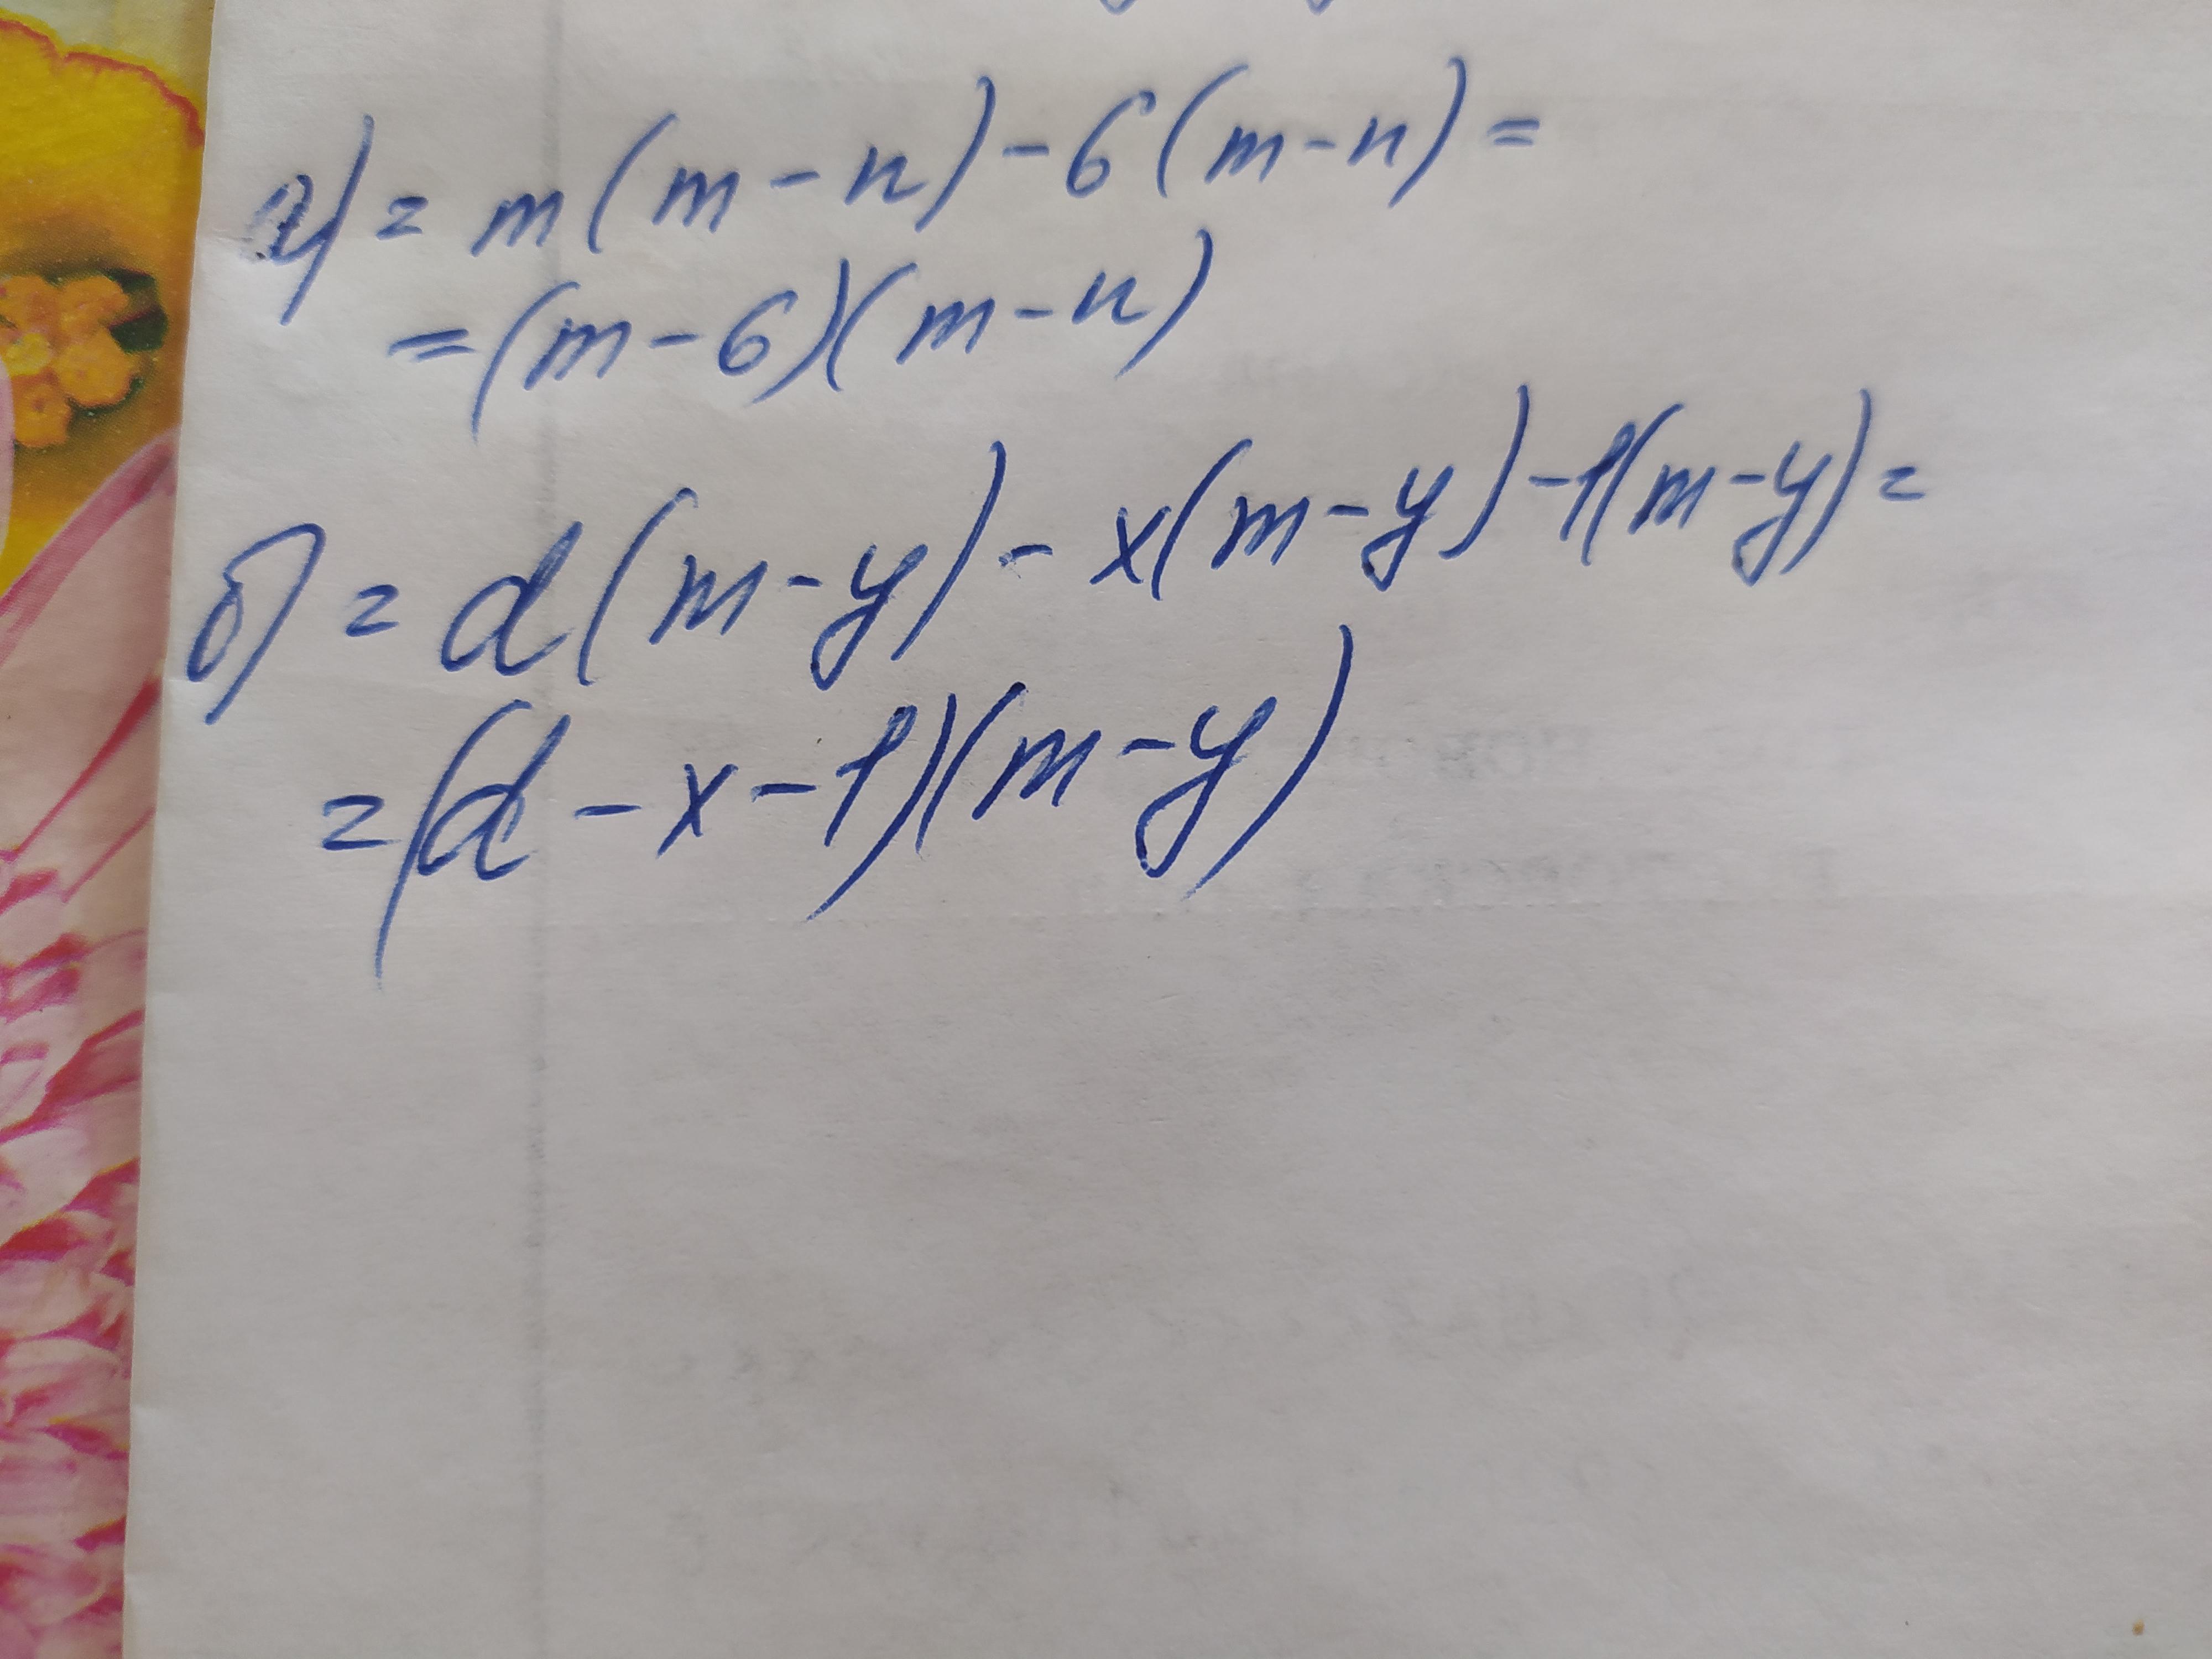 а) = m(m-n)-6(m-n)=
=(m-6)(m-n)
б) = d(m-y)-x(m-y)-1(m-y)=
=(d-x-1)(m-y)